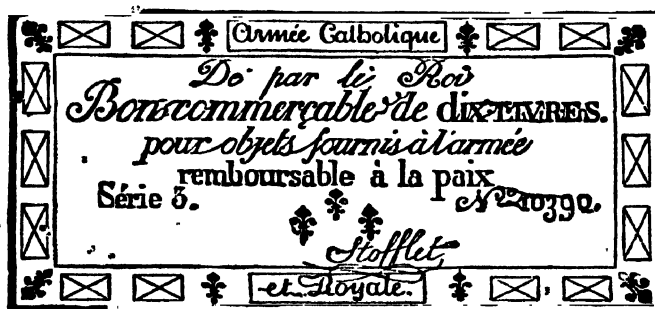 Armée Catholique
De par le Roi
Bon commerçable de DIX LIVRES.
pour objets fournis à l'armée
remboursable à la paix
Série 3. No. 10390.
Stofflet
et Royale.